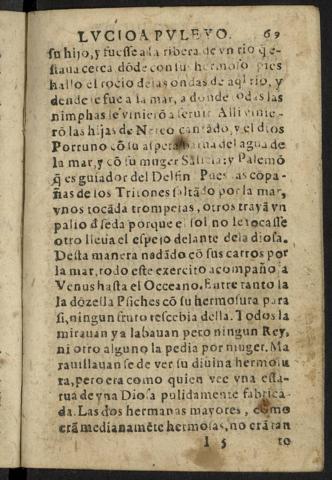 LVCIO APVLEYO. 69
su hijo, y fuesse a la ribera de vn rio q̃ e-
staua cerca dõde con su hermoso pies
hallo el rocio de las ondas de aq̃l rio, y
dende se fue a la mar, a donde todas las
nimphas le viniero a seruir. Alli vinie-
rõ las hijas de Nereo cantãdo, y el dios
Portuno cõ su aspera barua del agua de
la mar, y cõ su muger Salicia: y Palemõ
q̃ es guiador del Delfin. Pues las cop̃a-
ñas de los Tritones saltãdo por la mar,
vnos tocãda trompetas, otros trayã vn
palio d̃ seda porque el sol no le tocasse
otro lleua el espejo delante dela diosa.
Desta manera nadãdo cõ sus carros por
la mar, todo este exercito acompaño a
Venus hasta el Occeano. Entre tanto la
la dõzella Psiches cõ su hermosura para
si, ningun fruto rescebia della. Todos la
mirauan ya labauan pero ningun Rey,
ni otro alguno la pedia por muger. Ma
rauillauanse de ver su diuina hermosu
ra, pero era como quien vee vna esta-
rua de vna Diosa pulidamente fabrica-
da. Las dos hermanas mayores, como
erã medianamẽte hermosas, no erã tan
I 5 to